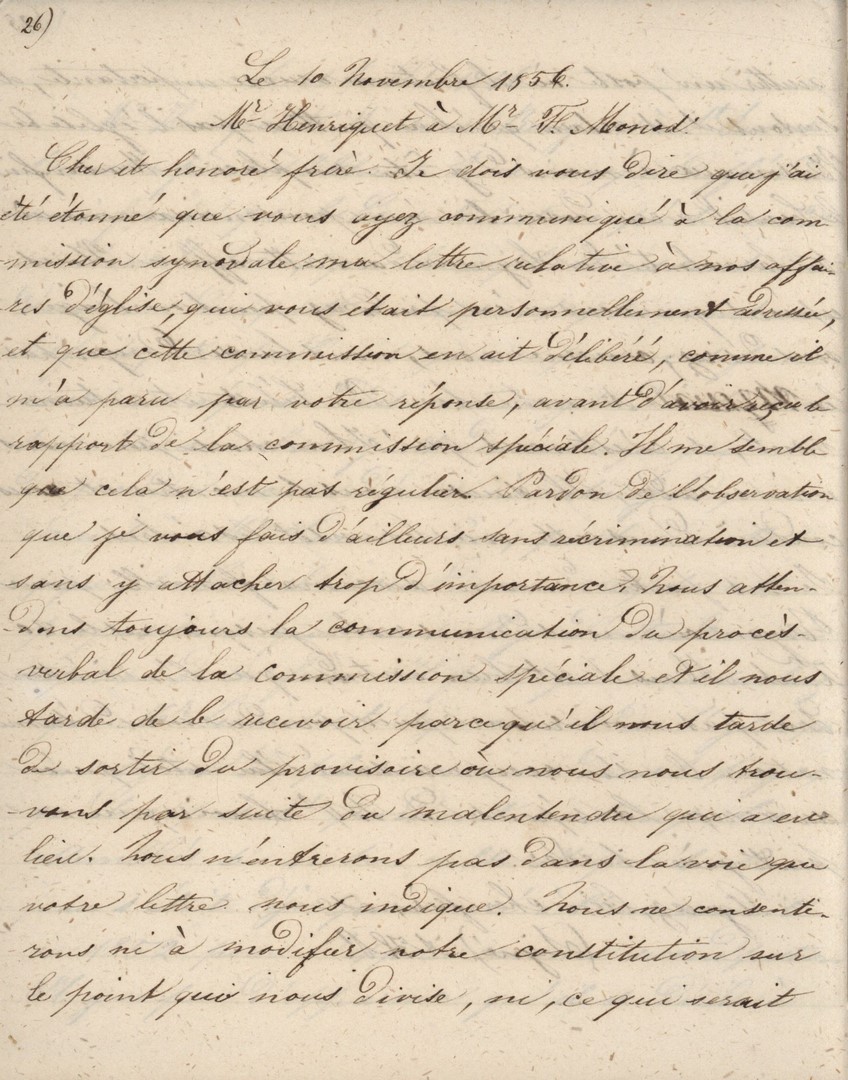 26)
Le 10 Novembre 1856.
Mr Henriquet à Mr F. Monod.
Cher et honoré frère. Je dois vous dire que j'ai
été étonné que vous ayez communiqué à la com
mission synodale ma lettre relative à nos affai-
res d'église, qui vous était personnellement adressée,
et que cette commission en ait délibéré, comme il
m'a paru par votre réponse, avant d'avoir reçu le
rapport de la commission spéciale. Il me semble
que cela n'est pas régulier. Pardon de l'observation
que je vous fais d'ailleurs sans récrimination et
sans y attacher trop d'importance. Nous atten-
dons toujours la communication du procès-
verbal de la commission spéciale et il nous
tarde de le recevoir parcequ'il nous tarde
de sortir du provisoire où nous nous trou-
vons par suite du malentendu qui a eu
lieu. Nous n'entrerons pas dans la voie que
votre lettre nous indique. Nous ne consenti-
rons ni à modifier notre constitution sur
le point qui nous divise, ni, ce qui serait